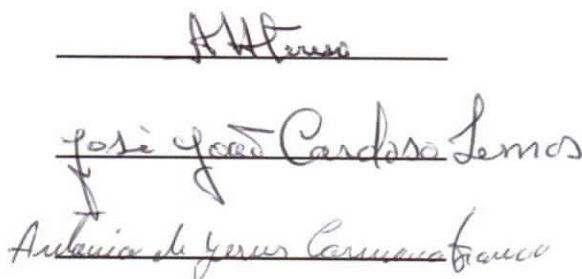 José João Cardoso Lemos
Antónia de Jesus Carmona Franco